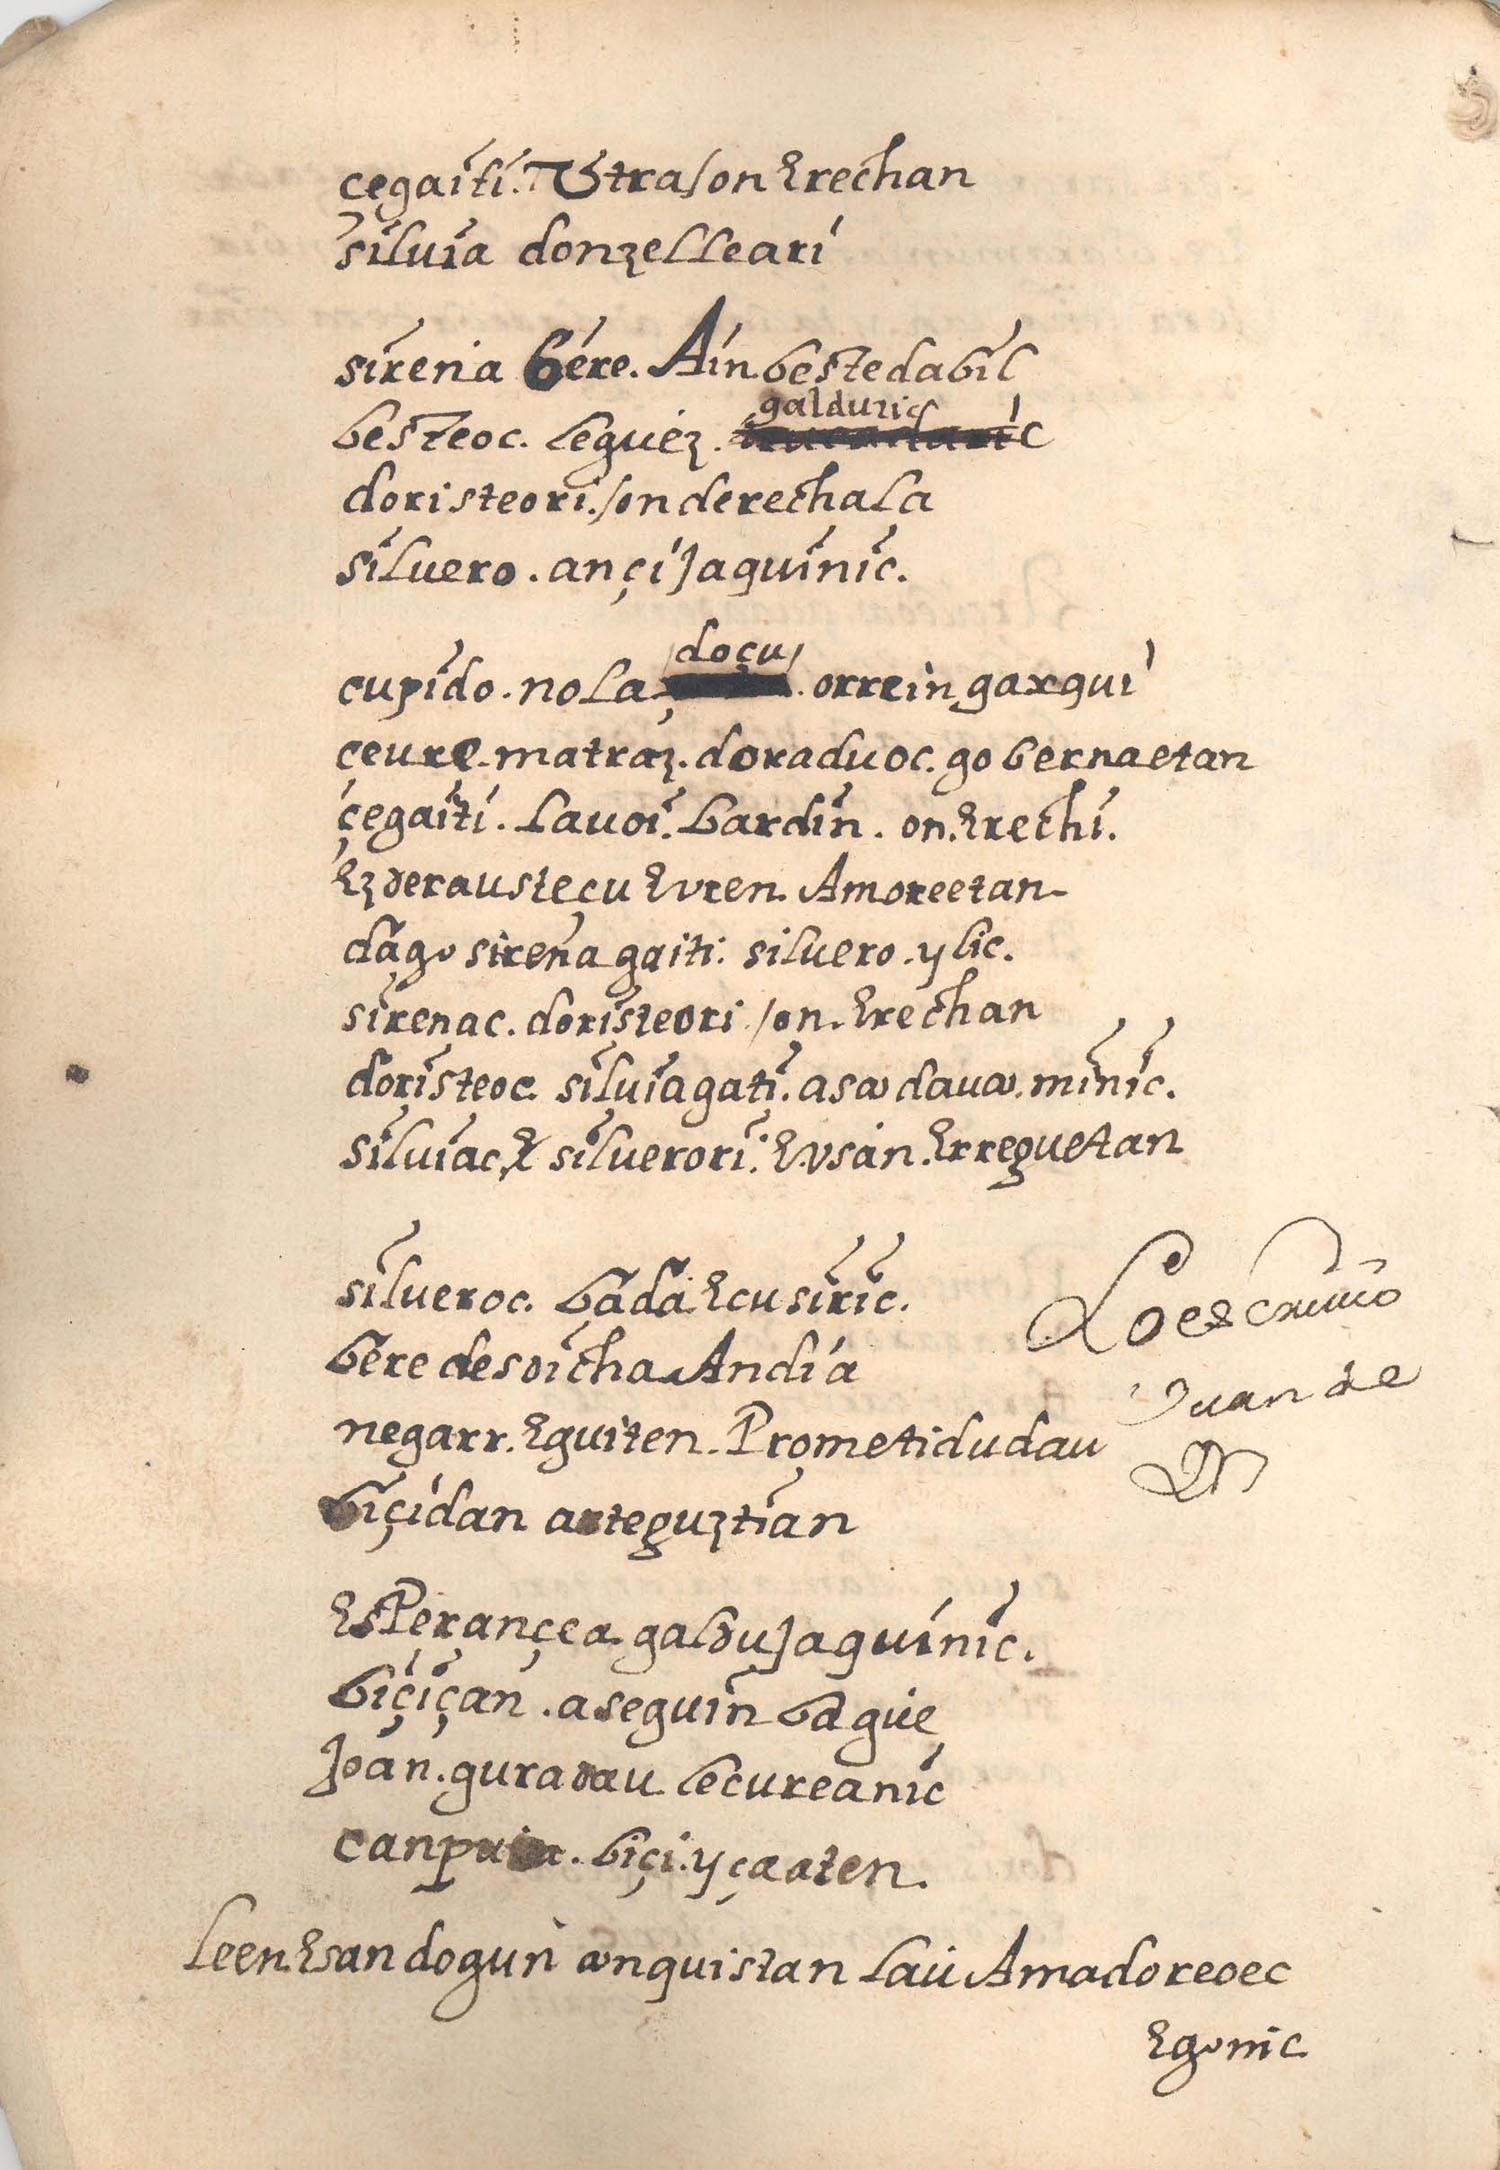 çegaiti. Utra/on Erechan
siluia donzelleari
sirena bere. Ain besteda bil
besteoc. leguez. galduric
doristeori. /on derechala
siluero. ançi Jaquinic.
cupido. nola doçu orrein garqui
çeure. matraz. doraduoc. gobernaetan
çegaiti. lauoi. bardin. on. Erechi.
Ez derausteçu Euren. Amoreetan
dago sirena gaiti. siluero. ylic.
sirenac. doristeori /on. Erechan
doristeoc. siluiagati. asco dauco. minic.
siluiac, siluerori. Eusan. Erreguetan
silueroc. bada Ecusiric.
bere desoicha Andia
negarr. Eguiten. Prometidudau
biçidan arteguztian
EsPerançea galdu Jaquinic.
biçiçan. aseguin bague
Joan. guradau lecureanic
biçi. yçaaten.
leen. Esan dogun conquistan lau Amadoreoec
Egonic
Lo escriuio
Juan de